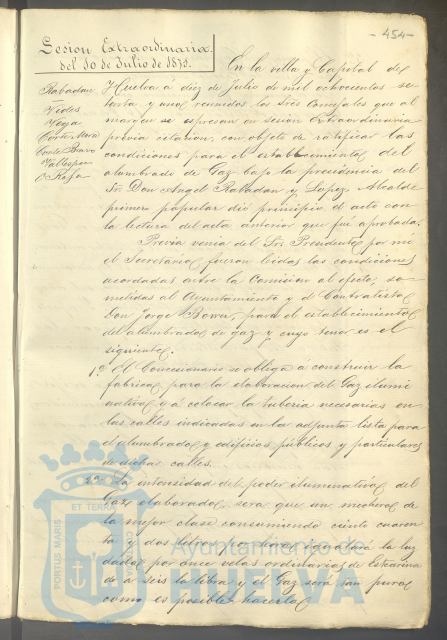 - 454 -
Sesion Extraordinaria
del 10 de Julio de 1873.
Rabadan
Vides
Vega
Garcia
En la villa y Capital de
Huelva á diez de Julio de mil ochocientos se
tenta y reunidos los Sres Concejales que al
margen se expresan en sesion Extraordinaria
prévia citacion, con objeto de ratificar las
condiciones para el establecimiento del
alumbrado de Gaz bajo la presidencia del
Sr. Don Angel Rabadan y Lopez Alcalde
primero popular dió principio el acto con
la lectura del acta anterior que fué aprobada.
Previa venia del Sr. Presidente, por mi
el Secretario fueron leidas las condiciones
acordadas entre la Comision al efecto, so-
metidas al Ayuntamiento y el Contratista
Don Jorge para el establecimiento
del alumbrado de gaz y cuyo tenor es el
siguiente.
1ª El Concesionario se obliga á construir la
fabrica para la elaboracion del Gaz ilumi
nativo y á colocar la tuberia necesarias en
las calles indicadas en la adjunta lista para
el alumbrado y edificios públicos y particulares
de dichas calles.
2ª La intensidad del poder iluminativo del
Gaz elaborado sera que un mechero de
la mejor clase consumiendo ciento cuaren
ta y dos litros por hora dará la luz
dada por once velas ordinarias de Estearina
de á seis la libra y el Gaz será tan puro
como es posible hacerlo
PORTUS MARIS
ET TERRAE
CUSTODIA
Ayuntamiento de
HUELVA